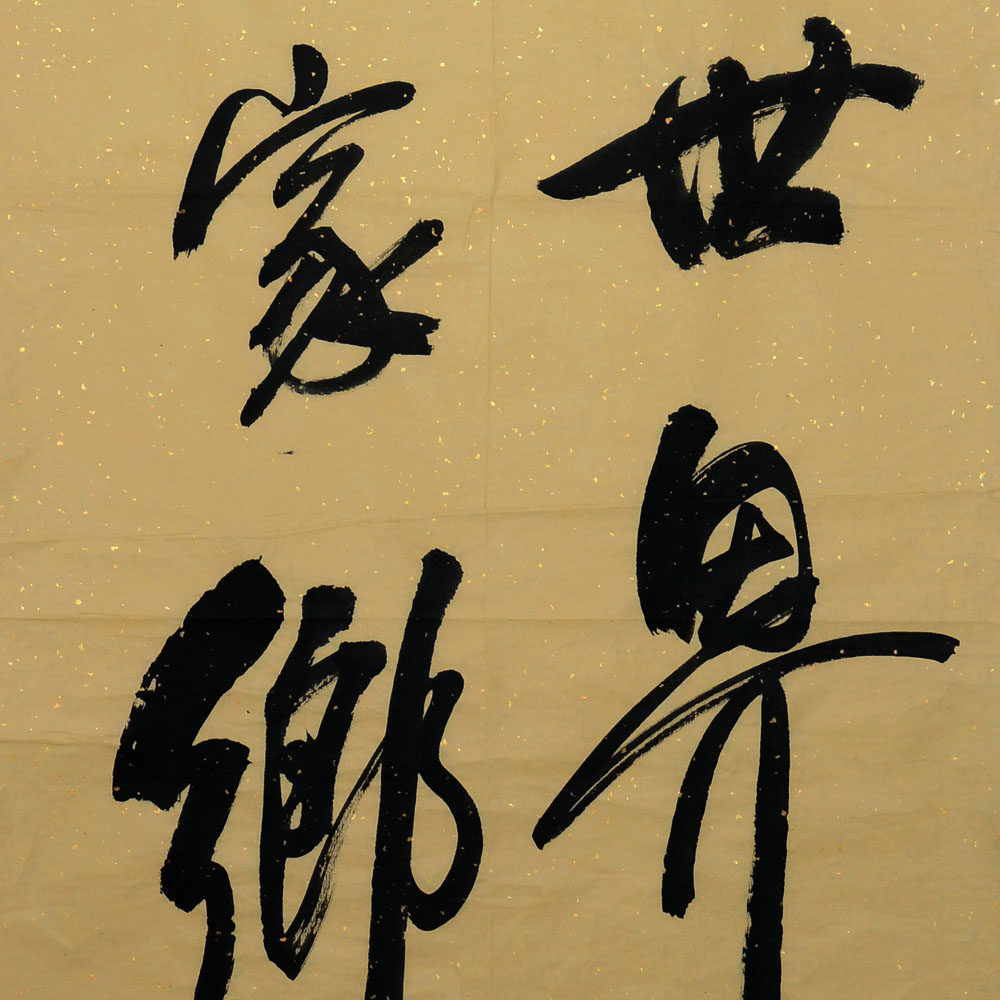 世界
家鄉